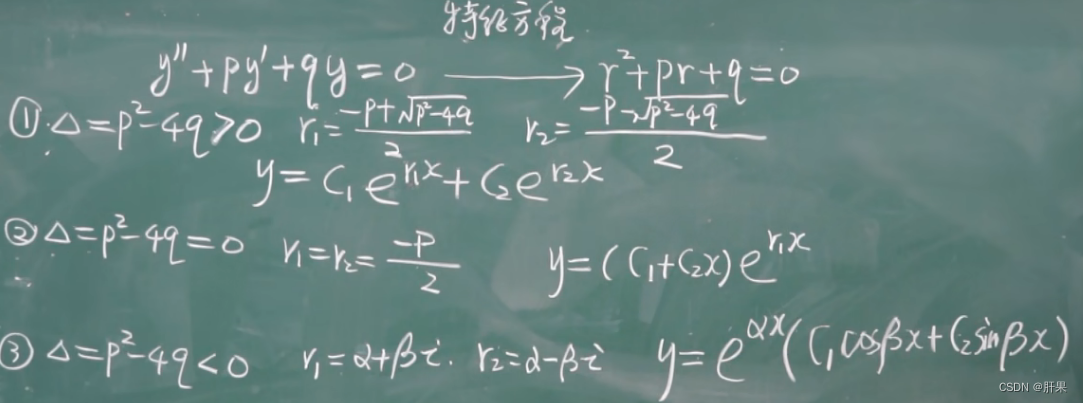 特征方程
y''+py'+qy=0 ⟶ r²+pr+q=0
① Δ=p²-4q>0 r₁=(-p+√(p²-4q))/2 r₂=(-p-√(p²-4q))/2
y=C₁e^(r₁x)+C₂e^(r₂x)
② Δ=p²-4q=0 r₁=r₂=-p/2 y=(C₁+C₂x)e^(r₁x)
③ Δ=p²-4q<0 r₁=α+βi. r₂=α-βi y=e^(αx)(C₁cosβx+C₂sinβx)
CSDN @肝果